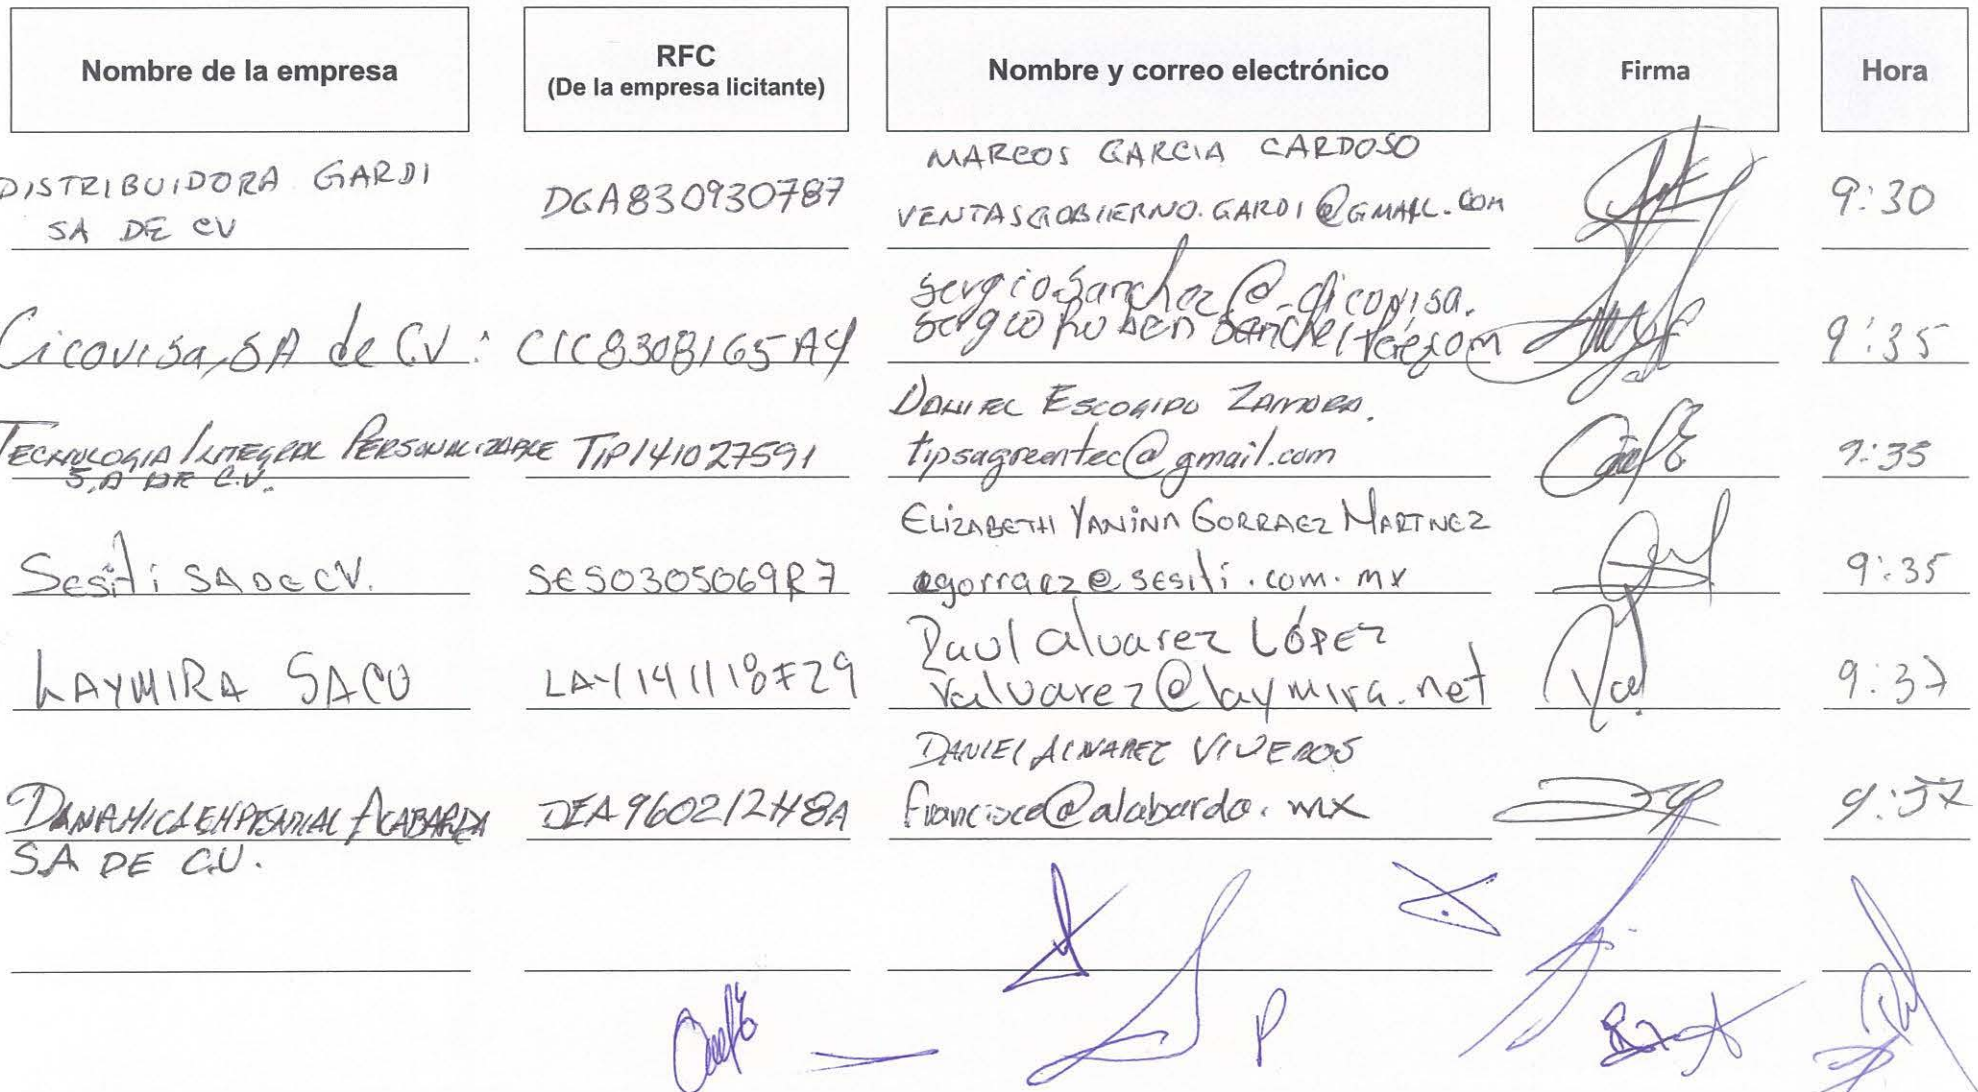 Nombre de la empresa
RFC
(De la empresa licitante)
Nombre y correo electrónico
Firma
Hora
DISTRIBUIDORA GARDI
SA DE CV
DGA830930787
MARCOS GARCIA CARDOSO
VENTASGOBIERNO.GARDI@GMAIL.COM
9:30
Cicovisa, SA de CV.
CIC8308165A4
sergio.sanchez@cicovisa.
Sergio Ruben Sanchez Perez
9:35
TECNOLOGIA INTEGRAL PERSONALIZABLE
S.A DE C.V.
TIP141027591
DANIEL ESCOGIDO ZAMORA.
tipsagreentec@gmail.com
9:35
Sesiti SA DE CV.
SES0305069R7
ELIZABETH YANINA GORRAEZ MARTINEZ
egorraez@sesiti.com.mx
9:35
LAYMIRA SACV
LAY141118F29
Raul alvarez LÓPEZ
ralvarez@laymira.net
9:37
ALABARDA
SA DE C.V.
DEA960212H8A
DANIEL ALVAREZ VIVEROS
9:37